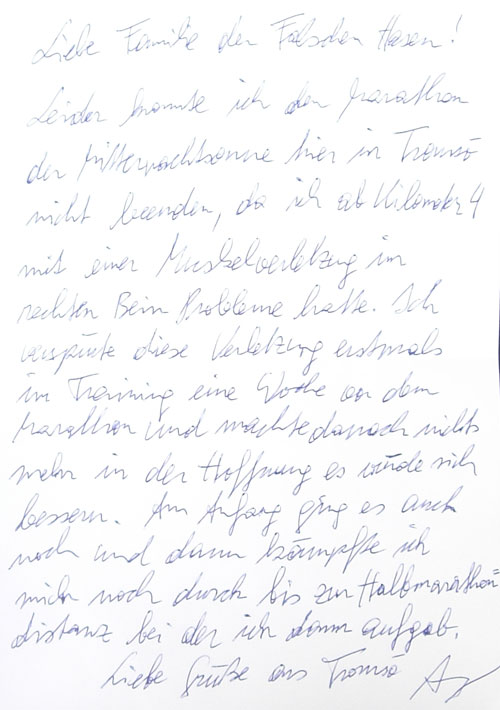 Liebe Familie der Falschen Hasen!
Leider konnte ich den Marathon
der Mitternachtsonne hier in Tromsö
nicht beenden, da ich ab Kilometer 4
mit einer Muskelverletzung im
rechten Bein Probleme hatte. Ich
verspürte diese Verletzung erstmals
im Training eine Woche vor dem
Marathon und machte danach nichts
mehr in der Hoffnung es würde sich
bessern. Am Anfang ging es auch
noch und dann kämpfte ich
mich noch durch bis zur Halbmarathon=
distanz bei der ich dann aufgab.
Liebe Grüße aus Tromsö